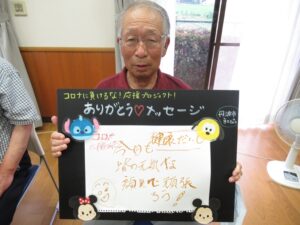 コロナに負けるな!応援プロジェクト!
ありがとう♡メッセージ
コロナ
今日も健康だし
皆の元気な
顔見て頑張
ろう!!